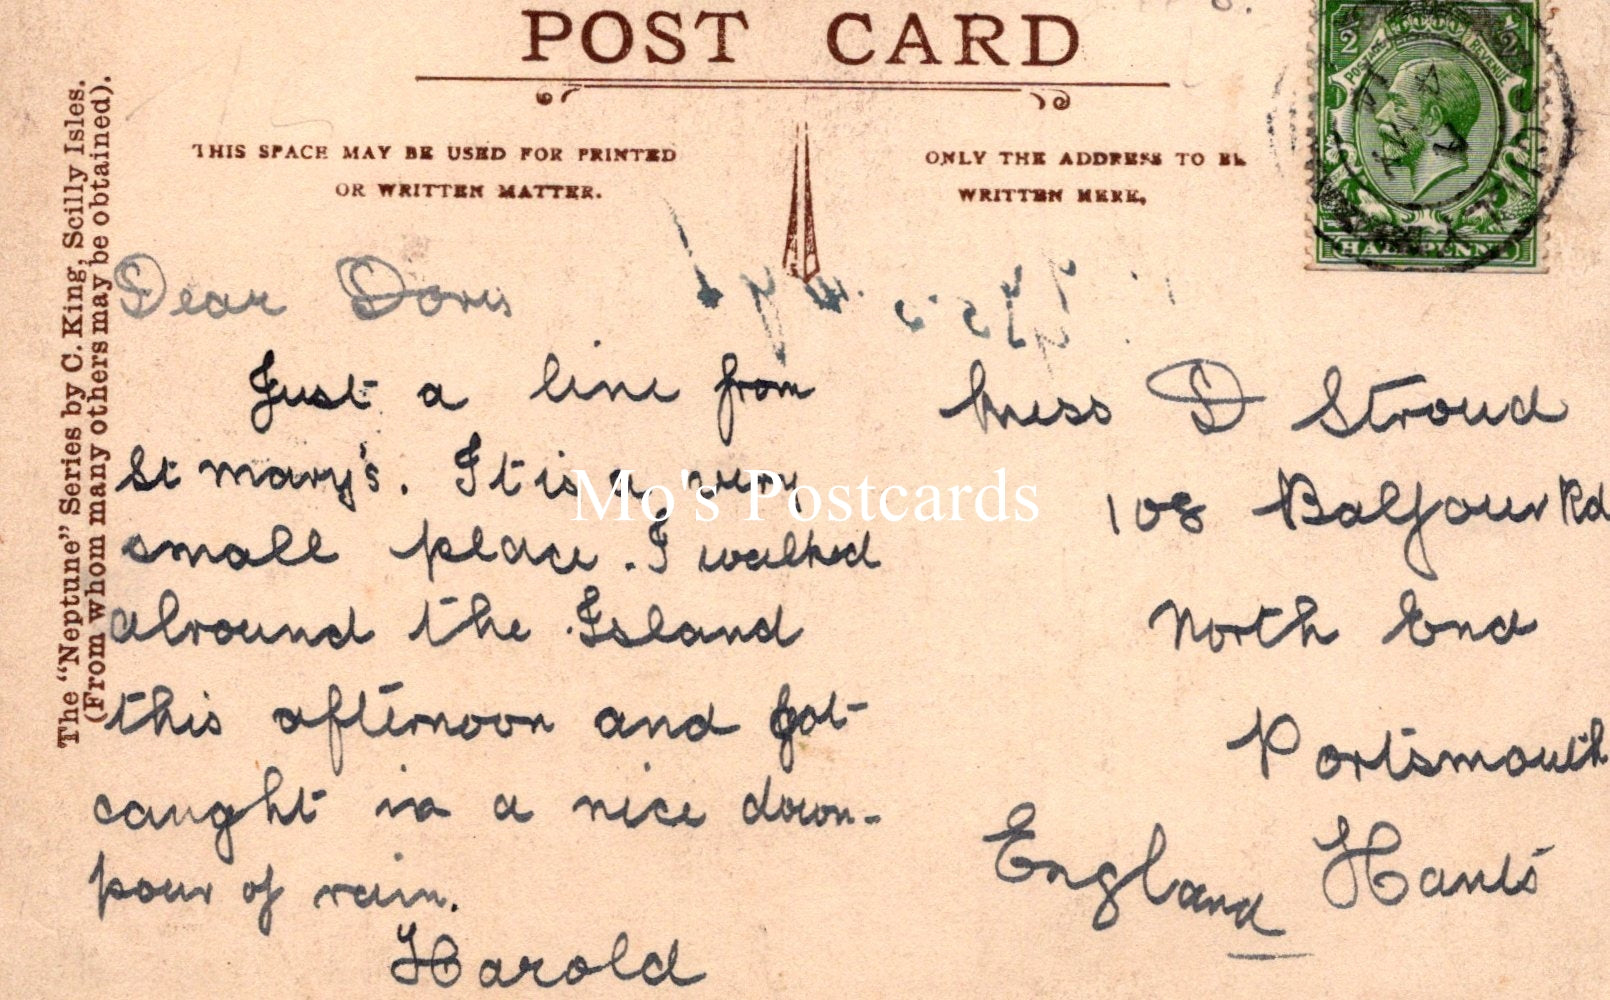 POST CARD
THIS SPACE MAY BE USED FOR PRINTED
OR WRITTEN MATTER.
ONLY THE ADDRESS TO BE
WRITTEN HERE.
The "Neptune" Series by C. King, Scilly Isles.
(From whom many others may be obtained).
POSTAGE REVENUE
HALFPENNY
Dear Doris
Just a line from
St Mary's. It is a very
small place. I walked
alround the Island
this afternoon and got
caught in a nice down-
pour of rain.
Harold
Miss D Stroud
108 Balfour Rd
North End
Portsmouth
England Hants
Mo's Postcards